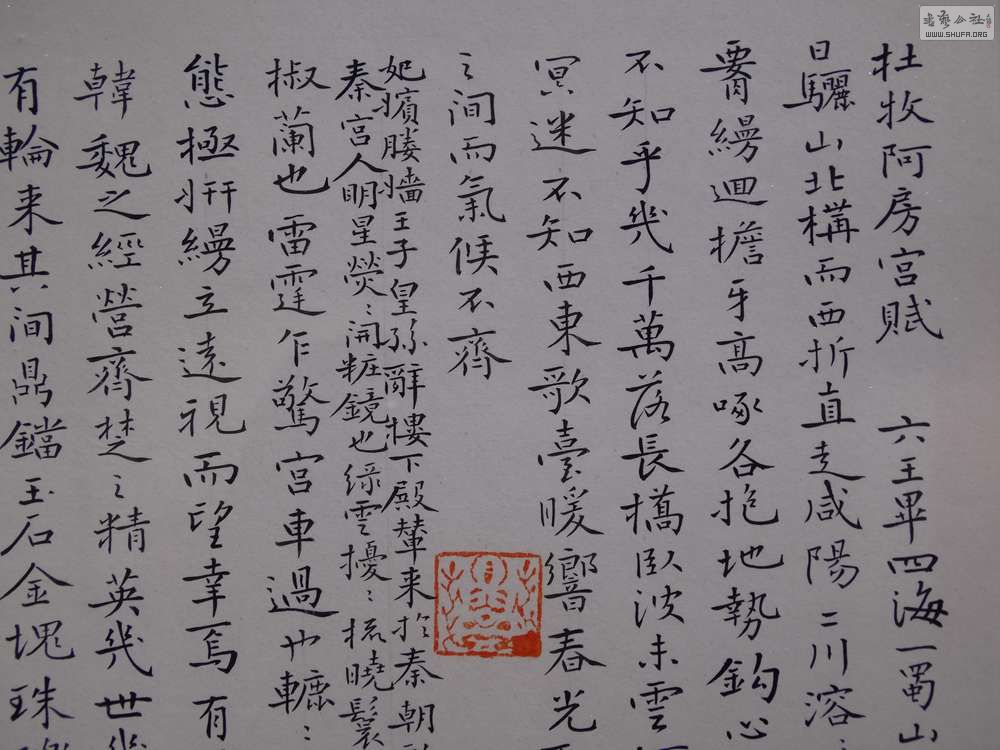 杜牧阿房宫賦 六王畢四海一蜀山
日驪山北構而西折直走咸陽二川溶
霄縵迴檐牙高啄各抱地勢鈎心
不知乎幾千萬落長橋臥波未雲
冥迷不知西東歌臺暖響春光
之澗而氣候不齊
妃嬪媵嬙王子皇孫辭樓下殿輦来於秦朝
秦宫人明星熒〻開粧鏡也緑雲擾〻梳曉鬟
椒蘭也雷霆乍驚宫車過也轆〻
態極姸縵立遠視而望幸焉有
韓魏之經營齊楚之精英幾世幾
有輪来其澗鼎鐺玉石金塊珠
書藝公社
WWW.SHUFA.ORG